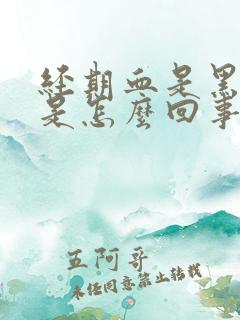 經期血是黑
是怎麼回事
五阿哥
未經同意禁止轉載